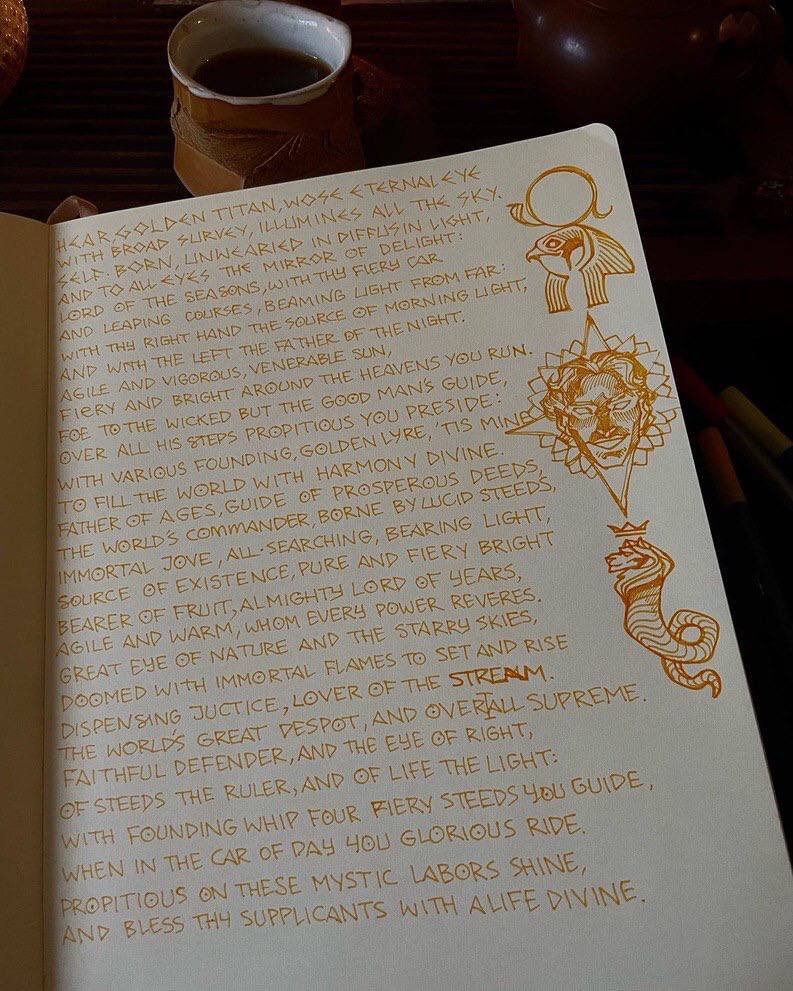 HEAR, GOLDEN TITAN, WOSE ETERNAL EYE
WITH BROAD SURVEY, ILLUMINES ALL THE SKY.
SELF-BORN, UNWEARIED IN DIFFUSIN LIGHT,
AND TO ALL EYES THE MIRROR OF DELIGHT:
LORD OF THE SEASONS, WITH THY FIERY CAR
AND LEAPING COURSES, BEAMING LIGHT FROM FAR:
WITH THY RIGHT HAND THE SOURCE OF MORNING LIGHT,
AND WITH THE LEFT THE FATHER OF THE NIGHT.
AGILE AND VIGOROUS, VENERABLE SUN,
FIERY AND BRIGHT AROUND THE HEAVENS YOU RUN.
FOE TO THE WICKED BUT THE GOOD MAN'S GUIDE,
OVER ALL HIS STEPS PROPITIOUS YOU PRESIDE:
WITH VARIOUS FOUNDING, GOLDEN LYRE, 'TIS MINE
TO FILL THE WORLD WITH HARMONY DIVINE.
FATHER OF AGES, GUIDE OF PROSPEROUS DEEDS,
THE WORLD'S COMMANDER, BORNE BY LUCID STEEDS,
IMMORTAL JOVE, ALL-SEARCHING, BEARING LIGHT,
SOURCE OF EXISTENCE, PURE AND FIERY BRIGHT
BEARER OF FRUIT, ALMIGHTY LORD OF YEARS,
AGILE AND WARM, WHOM EVERY POWER REVERES.
GREAT EYE OF NATURE AND THE STARRY SKIES,
DOOMED WITH IMMORTAL FLAMES TO SET AND RISE
DISPENSING JUCTICE, LOVER OF THE STREAM.
THE WORLD'S GREAT DESPOT, AND OVER ALL SUPREME.
FAITHFUL DEFENDER, AND THE EYE OF RIGHT,
OF STEEDS THE RULER, AND OF LIFE THE LIGHT:
WITH FOUNDING WHIP FOUR FIERY STEEDS YOU GUIDE,
WHEN IN THE CAR OF DAY YOU GLORIOUS RIDE.
PROPITIOUS ON THESE MYSTIC LABORS SHINE,
AND BLESS THY SUPPLICANTS WITH A LIFE DIVINE.